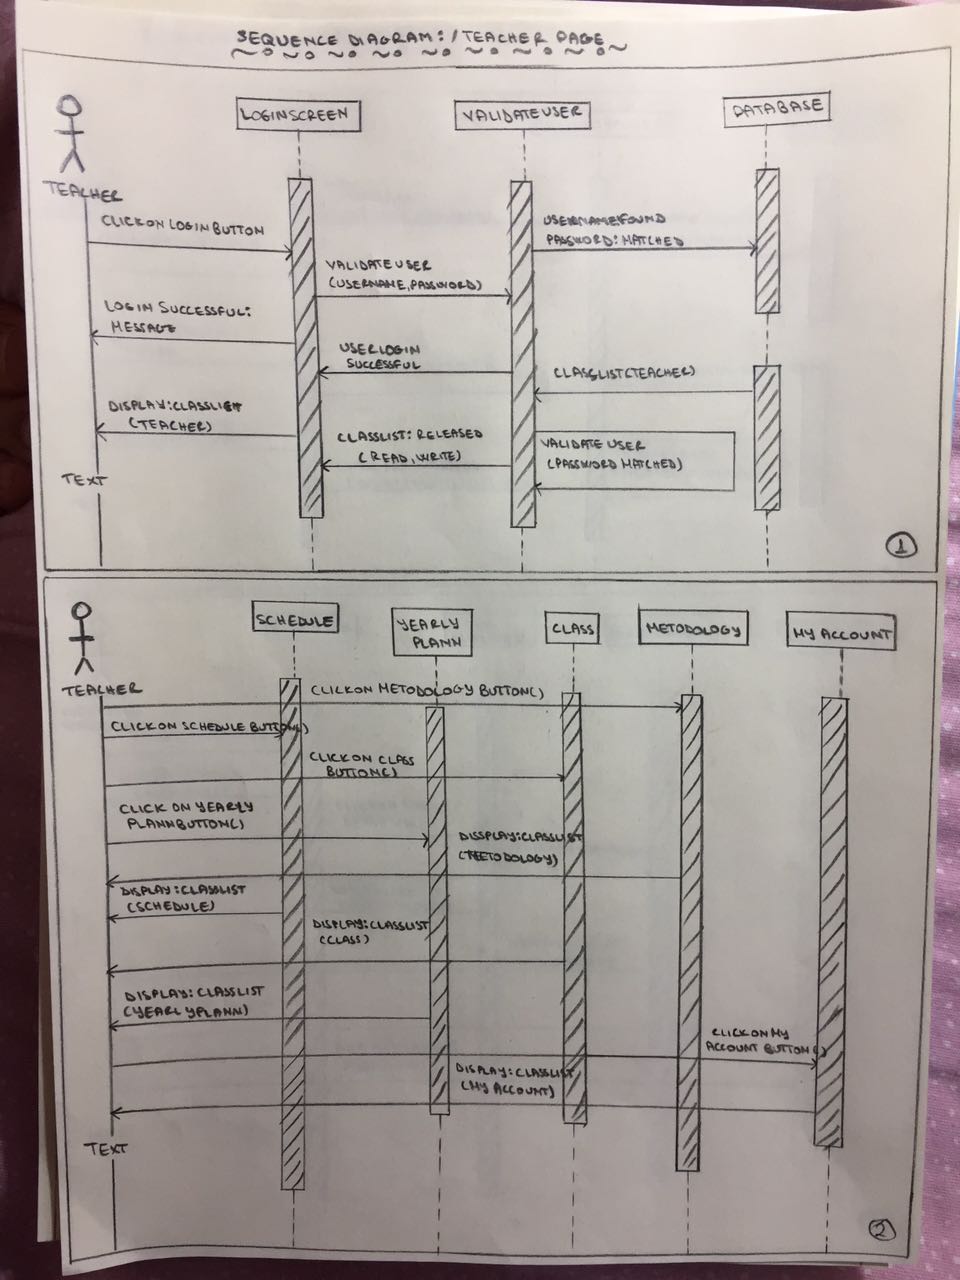 SEQUENCE DIAGRAM:/TEACHER PAGE
LOGINSCREEN
VALIDATEUSER
DATABASE
TEACHER
CLICK ON LOGIN BUTTON
USERNAME:FOUND
PASSWORD:MATCHED
VALIDATEUSER
(USERNAME,PASSWORD)
LOGIN SUCCESSFUL:
MESSAGE
USERLOGIN
SUCCESSFUL
CLASSLIST(TEACHER)
DISPLAY:CLASSLIST
(TEACHER)
CLASSLIST: RELEASED
(READ,WRITE)
VALIDATE USER
(PASSWORD MATCHED)
TEXT
1
SCHEDULE
YEARLY
PLANN
CLASS
METODOLOGY
MY ACCOUNT
TEACHER
CLICKON METODOLOGY BUTTON()
CLICK ON SCHEDULE BUTTON()
CLICK ON CLASS
BUTTON()
CLICK ON YEARLY
PLANNBUTTON()
DISSPLAY:CLASSLIST
(METODOLOGY)
DISPLAY:CLASSLIST
(SCHEDULE)
DISPLAY:CLASSLIST
(CLASS)
DISPLAY:CLASSLIST
(YEARLYPLANN)
CLICK ON MY
ACCOUNT BUTTON()
DISPLAY:CLASSLIST
(MY ACCOUNT)
TEXT
2